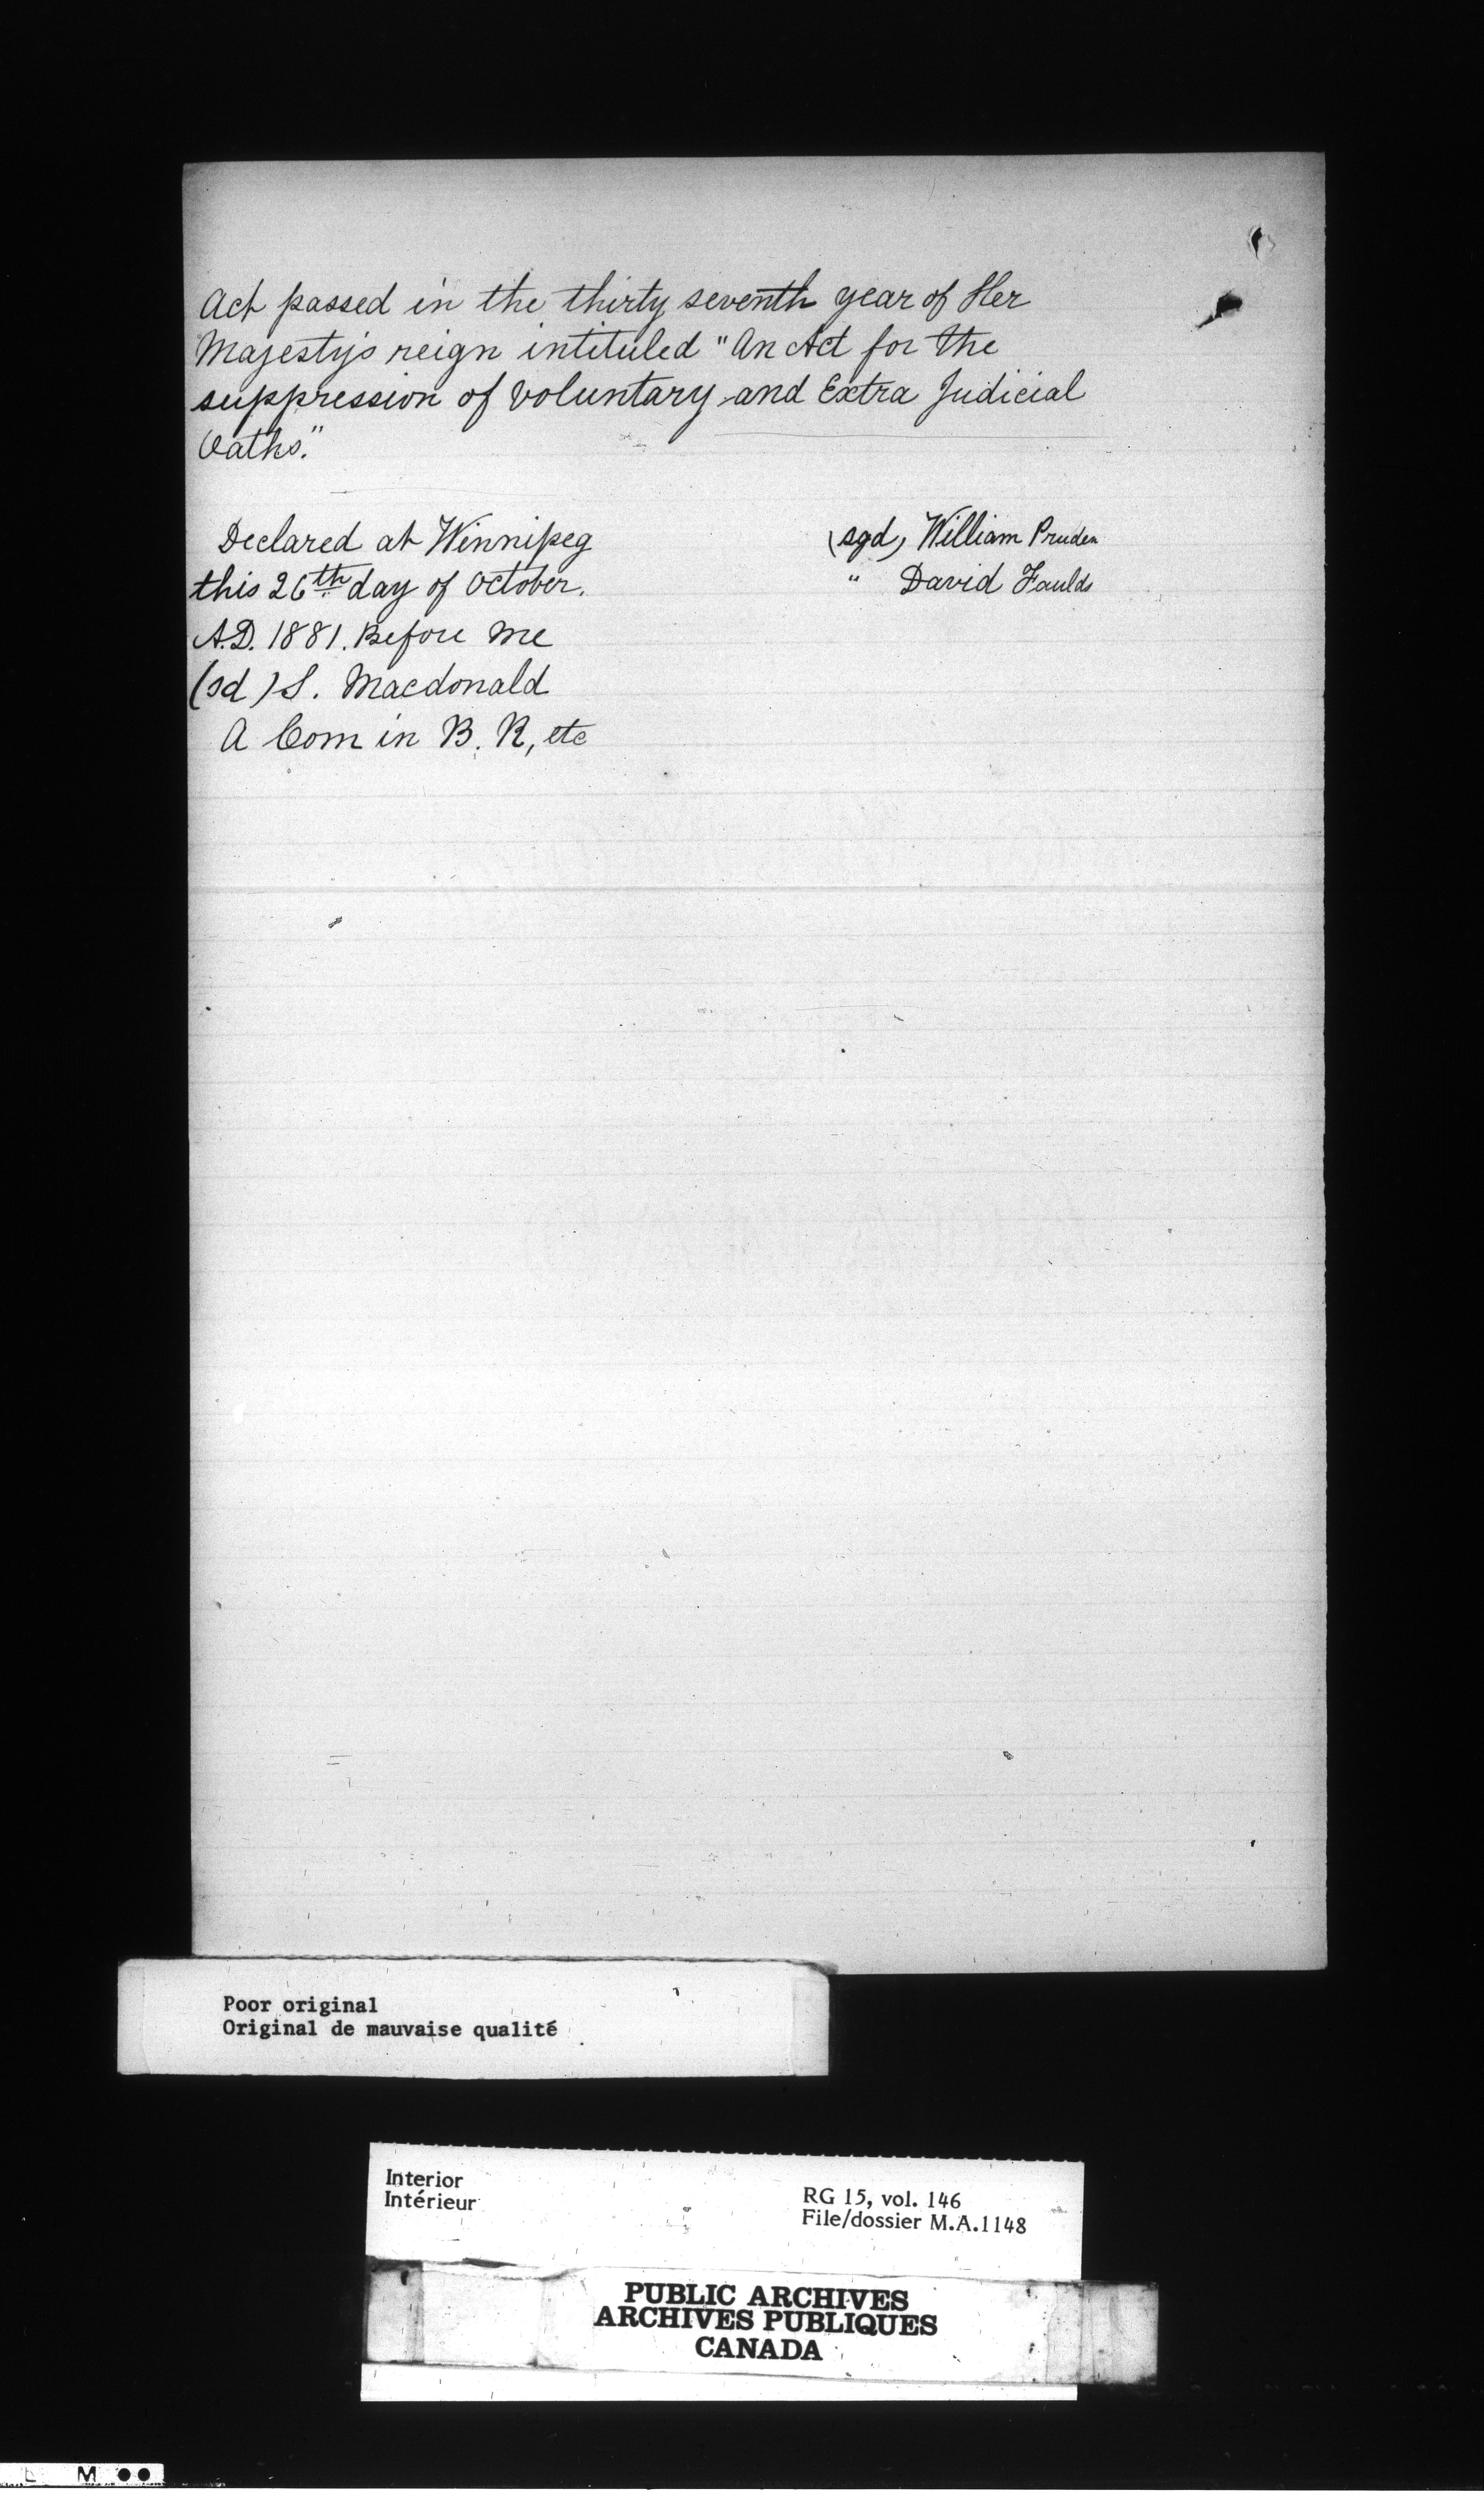 Act passed in the thirty seventh year of Her
Majesty's reign intituled "An Act for the
suppression of voluntary and Extra Judicial
Oaths."
Declared at Winnipeg
this 26th day of October.
A.D. 1881. Before me
(sd) S. Macdonald
A Com in B. R, etc
(sgd) William Pruden
" David Faulds
Poor original
Original de mauvaise qualité
Interior
Intérieur
RG 15, vol. 146
File/dossier M.A.1148
PUBLIC ARCHIVES
ARCHIVES PUBLIQUES
CANADA
M